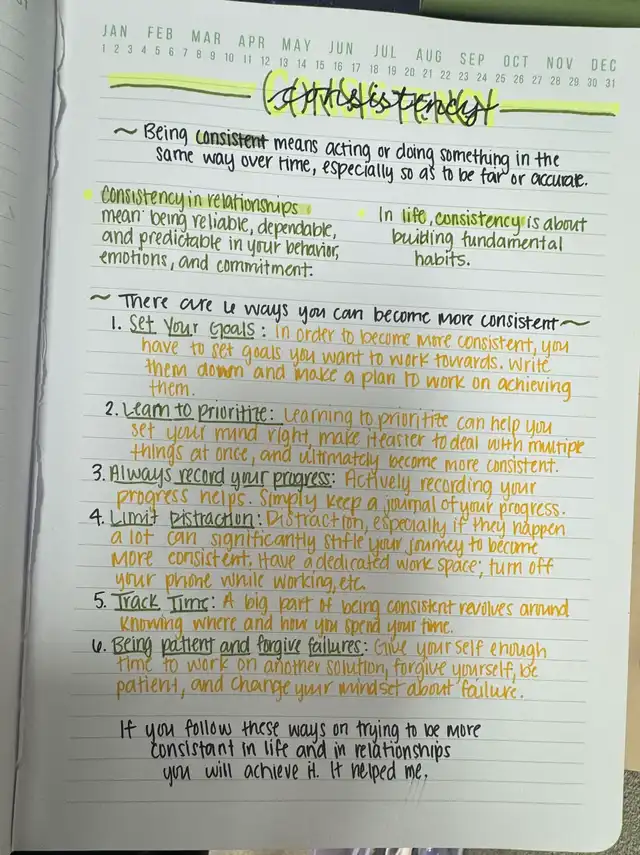 JAN FEB MAR APR MAY JUN JUL AUG SEP OCT NOV DEC
1 2 3 4 5 6 7 8 9 10 11 12 13 14 15 16 17 18 19 20 21 22 23 24 25 26 27 28 29 30 31
Consistency
~ Being consistent means acting or doing something in the
same way over time, especially so as to be fair or accurate.
• Consistency in relationships
mean being reliable, dependable,
and predictable in your behavior,
emotions, and commitment.
• In life, consistency is about
building fundamental
habits.
~ There are 6 ways you can become more consistent ~
1. Set Your Goals: In order to become more consistent, you
have to set goals you want to work towards. Write
them down and make a plan to work on achieving
them.
2. Learn to prioritize: Learning to prioritize can help you
set your mind right, make it easier to deal with multiple
things at once, and ultimately become more consistent.
3. Always record your progress: Actively recording your
progress helps. Simply keep a journal of your progress.
4. Limit Distraction: Distraction, especially if they happen
a lot can significantly stifle your journey to become
more consistent. Have a dedicated work space; turn off
your phone while working, etc.
5. Track Time: A big part of being consistent revolves around
knowing where and how you spend your time.
6. Being patient and forgive failures: Give yourself enough
time to work on another solution, forgive yourself, be
patient, and change your mindset about failure.
If you follow these ways on trying to be more
consistant in life and in relationships
you will achieve it. It helped me.